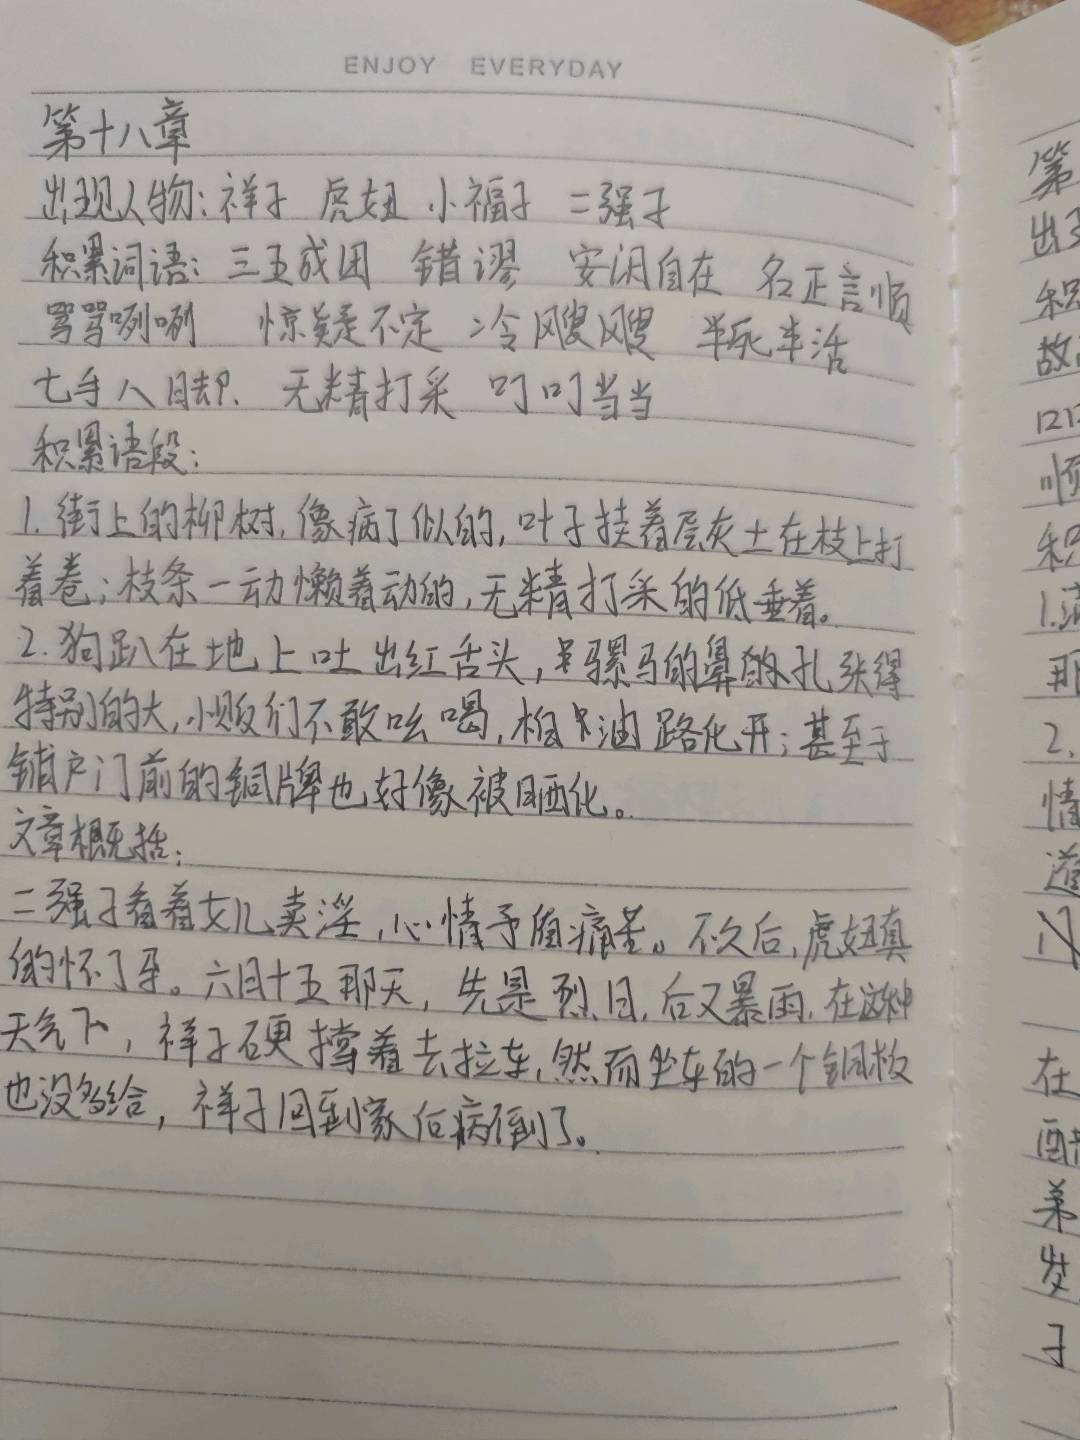 ENJOY EVERYDAY
第十八章
出现人物:祥子 虎妞 小福子 二强子
积累词语:三五成团 错谬 安闲自在 名正言顺
骂骂咧咧 惊疑不定 冷飕飕 半死半活
七手八脚 无精打采 叮叮当当
积累语段:
1.街上的柳树,像病了似的,叶子挂着层灰土在枝上打
着卷;枝条一动懒着动的,无精打采的低垂着。
2.狗趴在地上吐出红舌头,骡马的鼻孔张得
特别的大,小贩们不敢吆喝,柏油路化开;甚至于
铺户门前的铜牌也好像被晒化。
文章概括:
二强子看着女儿卖淫,心情矛盾痛苦。不久后,虎妞真
的怀了孕。六月十五那天,先是烈日,后又暴雨,在这种
天气下,祥子硬撑着去拉车,然而坐车的一个铜板
也没多给,祥子回到家后病倒了。
第
出
积
故
口口
顺
积
1.
那
2、
情
道
在
酉
弟
发
子